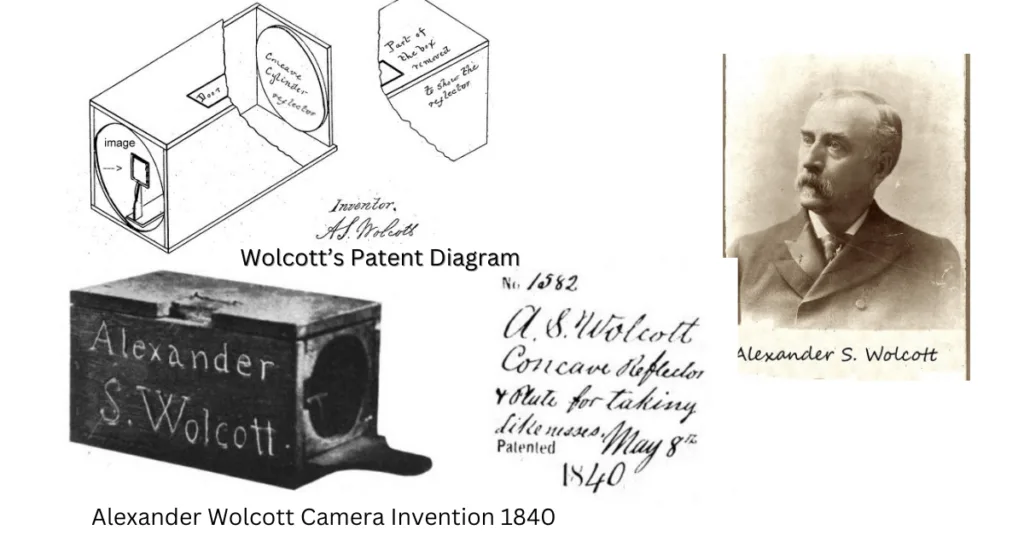 Concave
Cylinder
reflector
Door
Part of
the box
removed
to show the
reflector
image
Inventor.
A.S. Wolcott
Wolcott's Patent Diagram
Alexander
S. Wolcott.
No. 1582
A. S. Wolcott
Concave Reflector
& Plate for taking
likenesses.
Patented May 8th
1840
Alexander S. Wolcott
Alexander Wolcott Camera Invention 1840